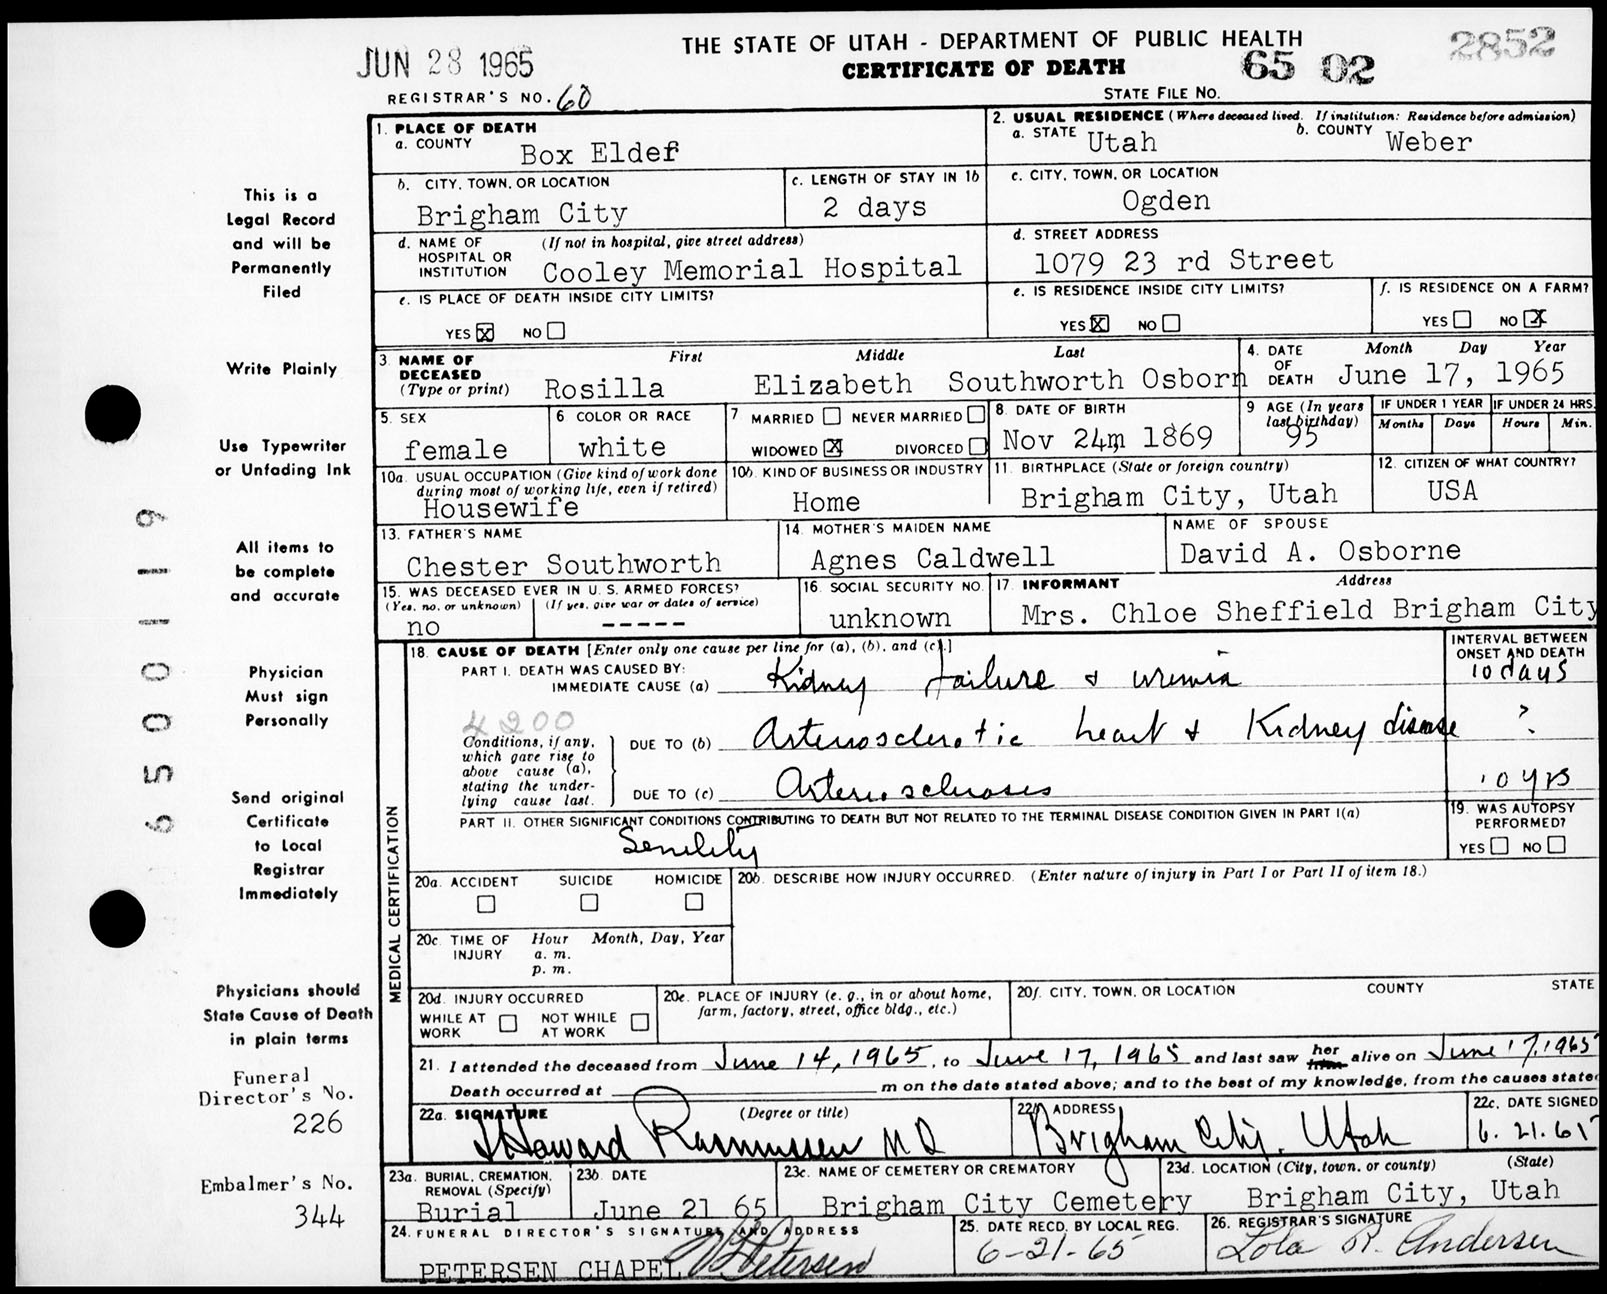 THE STATE OF UTAH - DEPARTMENT OF PUBLIC HEALTH
2852
JUN 28 1965
CERTIFICATE OF DEATH
65 02
REGISTRAR'S NO. 60
STATE FILE NO.
1. PLACE OF DEATH
a. COUNTY Box Elder
2. USUAL RESIDENCE (Where deceased lived. If institution: Residence before admission)
a. STATE Utah b. COUNTY Weber
b. CITY, TOWN, OR LOCATION Brigham City
c. LENGTH OF STAY IN 1b 2 days
c. CITY, TOWN, OR LOCATION Ogden
d. NAME OF HOSPITAL OR INSTITUTION (If not in hospital, give street address) Cooley Memorial Hospital
d. STREET ADDRESS 1079 23 rd Street
e. IS PLACE OF DEATH INSIDE CITY LIMITS?
YES X NO
e. IS RESIDENCE INSIDE CITY LIMITS?
YES X NO
f. IS RESIDENCE ON A FARM?
YES NO X
3. NAME OF DECEASED (Type or print)
First Middle Last
Rosilla Elizabeth Southworth Osborn
4. DATE OF DEATH Month Day Year
June 17, 1965
5. SEX female
6 COLOR OR RACE white
7 MARRIED NEVER MARRIED
WIDOWED X DIVORCED
8. DATE OF BIRTH Nov 24m, 1869
9 AGE (In years last birthday) 95
IF UNDER 1 YEAR Months Days
IF UNDER 24 HRS. Hours Min.
10a. USUAL OCCUPATION (Give kind of work done during most of working life, even if retired)
Housewife
10b. KIND OF BUSINESS OR INDUSTRY
Home
11. BIRTHPLACE (State or foreign country)
Brigham City, Utah
12. CITIZEN OF WHAT COUNTRY?
USA
13. FATHER'S NAME
Chester Southworth
14. MOTHER'S MAIDEN NAME
Agnes Caldwell
NAME OF SPOUSE
David A. Osborne
15. WAS DECEASED EVER IN U. S. ARMED FORCES?
(Yes, no, or unknown) (If yes, give war or dates of service)
no -----
16. SOCIAL SECURITY NO.
unknown
17. INFORMANT Address
Mrs. Chloe Sheffield Brigham City
18. CAUSE OF DEATH [Enter only one cause per line for (a), (b), and (c).]
INTERVAL BETWEEN ONSET AND DEATH
PART I. DEATH WAS CAUSED BY:
IMMEDIATE CAUSE (a) Kidney failure & uremia 10 days
4200
Conditions, if any, which gave rise to above cause (a), stating the underlying cause last.
DUE TO (b) Arteriosclerotic heart & Kidney disease ?
DUE TO (c) Arteriosclerosis 10 yrs
PART II. OTHER SIGNIFICANT CONDITIONS CONTRIBUTING TO DEATH BUT NOT RELATED TO THE TERMINAL DISEASE CONDITION GIVEN IN PART I(a)
Senility
19. WAS AUTOPSY PERFORMED?
YES NO
MEDICAL CERTIFICATION
20a. ACCIDENT SUICIDE HOMICIDE
20b. DESCRIBE HOW INJURY OCCURRED. (Enter nature of injury in Part I or Part II of item 18.)
20c. TIME OF INJURY Hour Month, Day, Year
a. m.
p. m.
20d. INJURY OCCURRED
WHILE AT WORK NOT WHILE AT WORK
20e. PLACE OF INJURY (e. g., in or about home, farm, factory, street, office bldg., etc.)
20f. CITY, TOWN, OR LOCATION COUNTY STATE
21. I attended the deceased from June 14, 1965, to June 17, 1965 and last saw her him alive on June 17, 1965
Death occurred at m on the date stated above; and to the best of my knowledge, from the causes state
22a. SIGNATURE (Degree or title)
J Howard Rasmussen M D
22b. ADDRESS
Brigham City, Utah
22c. DATE SIGNED
6. 21. 65
23a. BURIAL, CREMATION, REMOVAL (Specify)
Burial
23b DATE
June 21 65
23c. NAME OF CEMETERY OR CREMATORY
Brigham City Cemetery
23d. LOCATION (City, town, or county) (State)
Brigham City, Utah
24. FUNERAL DIRECTOR'S SIGNATURE AND ADDRESS
PETERSEN CHAPEL Petersen
25. DATE RECD. BY LOCAL REG.
6-21-65
26. REGISTRAR'S SIGNATURE
Lola R. Andersen
This is a
Legal Record
and will be
Permanently
Filed
Write Plainly
Use Typewriter
or Unfading Ink
All items to
be complete
and accurate
Physician
Must sign
Personally
Send original
Certificate
to Local
Registrar
Immediately
Physicians should
State Cause of Death
in plain terms
Funeral
Director's No.
226
Embalmer's No.
344
6500119